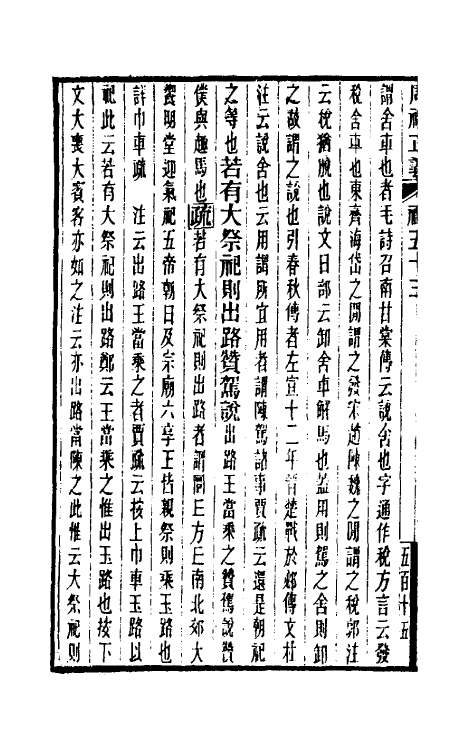 周禮正義 禮五十三 五百十五
謂舍車也者毛詩召南甘棠傳云說舍也字通作稅方言云發
稅舍車也東齊海岱之閒謂之發宋趙陳魏之閒謂之稅郭注
云稅猶脫也說文卪部云卸舍車解馬也蓋用則駕之舍則卸
之故謂之說也引春秋傳者左宣十二年晉楚戰於邲傳文杜
注云說舍也云用謂所宜用者謂陳駕諸事賈疏云還是朝祀
之等也若有大祭祀則出路贊駕說出路王當乘之贊駕說贊
僕與趣馬也疏若有大祭祀則出路者謂圜丘方丘南北郊大
饗明堂迎氣祀五帝朝日及宗廟六享王皆親祭則乘玉路也
詳巾車疏 注云出路王當乘之者賈疏云按上巾車玉路以
祀此云若有大祭祀則出路鄭云王當乘之惟出玉路也按下
文大喪大賓客亦如之注云亦出路當陳之此惟云大祭祀則